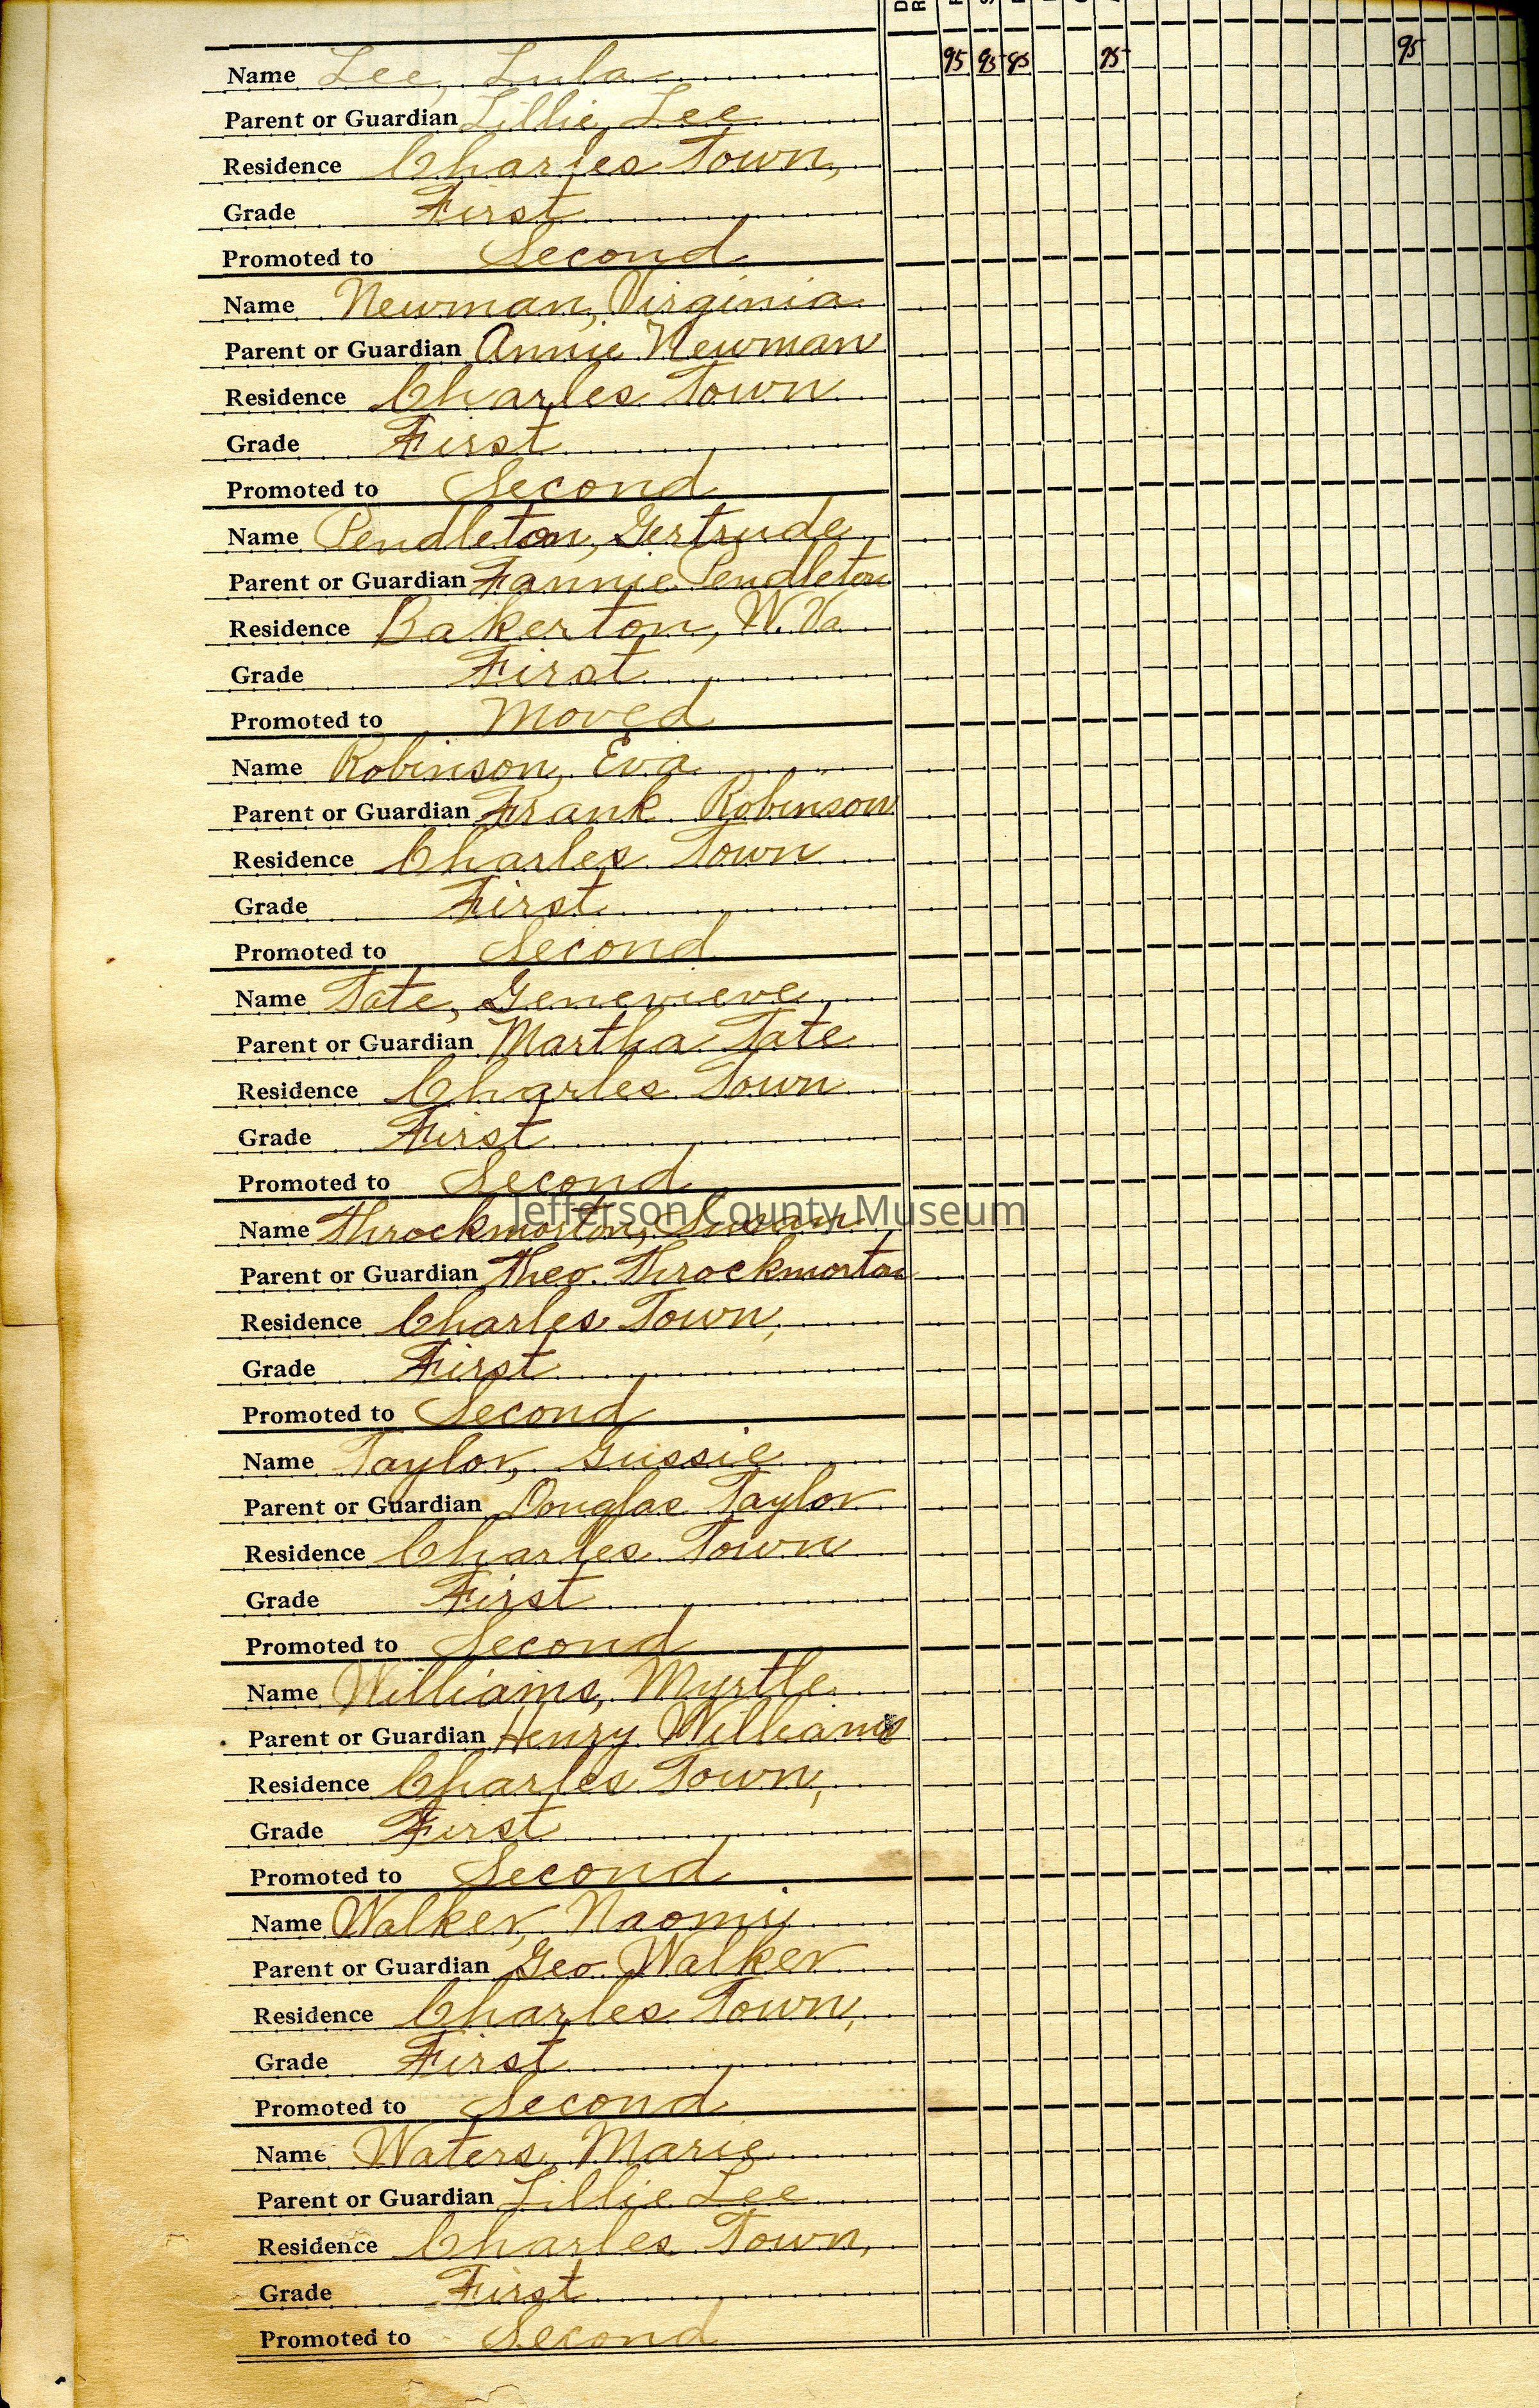 Name Lee, Lula 95 95 85 75 95
Parent or Guardian Lillie Lee
Residence Charles Town,
Grade First
Promoted to Second
Name Newman, Virginia
Parent or Guardian Annie Newman
Residence Charles Town
Grade First
Promoted to Second
Name Pendleton, Gertrude
Parent or Guardian Fannie Pendleton
Residence Bakerton, W. Va
Grade First
Promoted to Moved
Name Robinson, Eva
Parent or Guardian Frank Robinson
Residence Charles Town
Grade First
Promoted to Second
Name Tate, Genevieve
Parent or Guardian Martha Tate
Residence Charles Town
Grade First
Promoted to Second
Jefferson County Museum
Name Throckmorton, Susan
Parent or Guardian Theo. Throckmorton
Residence Charles Town,
Grade First
Promoted to Second
Name Taylor, Gussie
Parent or Guardian Douglas Taylor
Residence Charles Town
Grade First
Promoted to Second
Name Williams, Myrtle
Parent or Guardian Henry Williams
Residence Charles Town,
Grade First
Promoted to Second
Name Walker, Naomi
Parent or Guardian Geo Walker
Residence Charles Town,
Grade First
Promoted to Second
Name Waters, Marie
Parent or Guardian Lillie Lee
Residence Charles Town,
Grade First
Promoted to Second